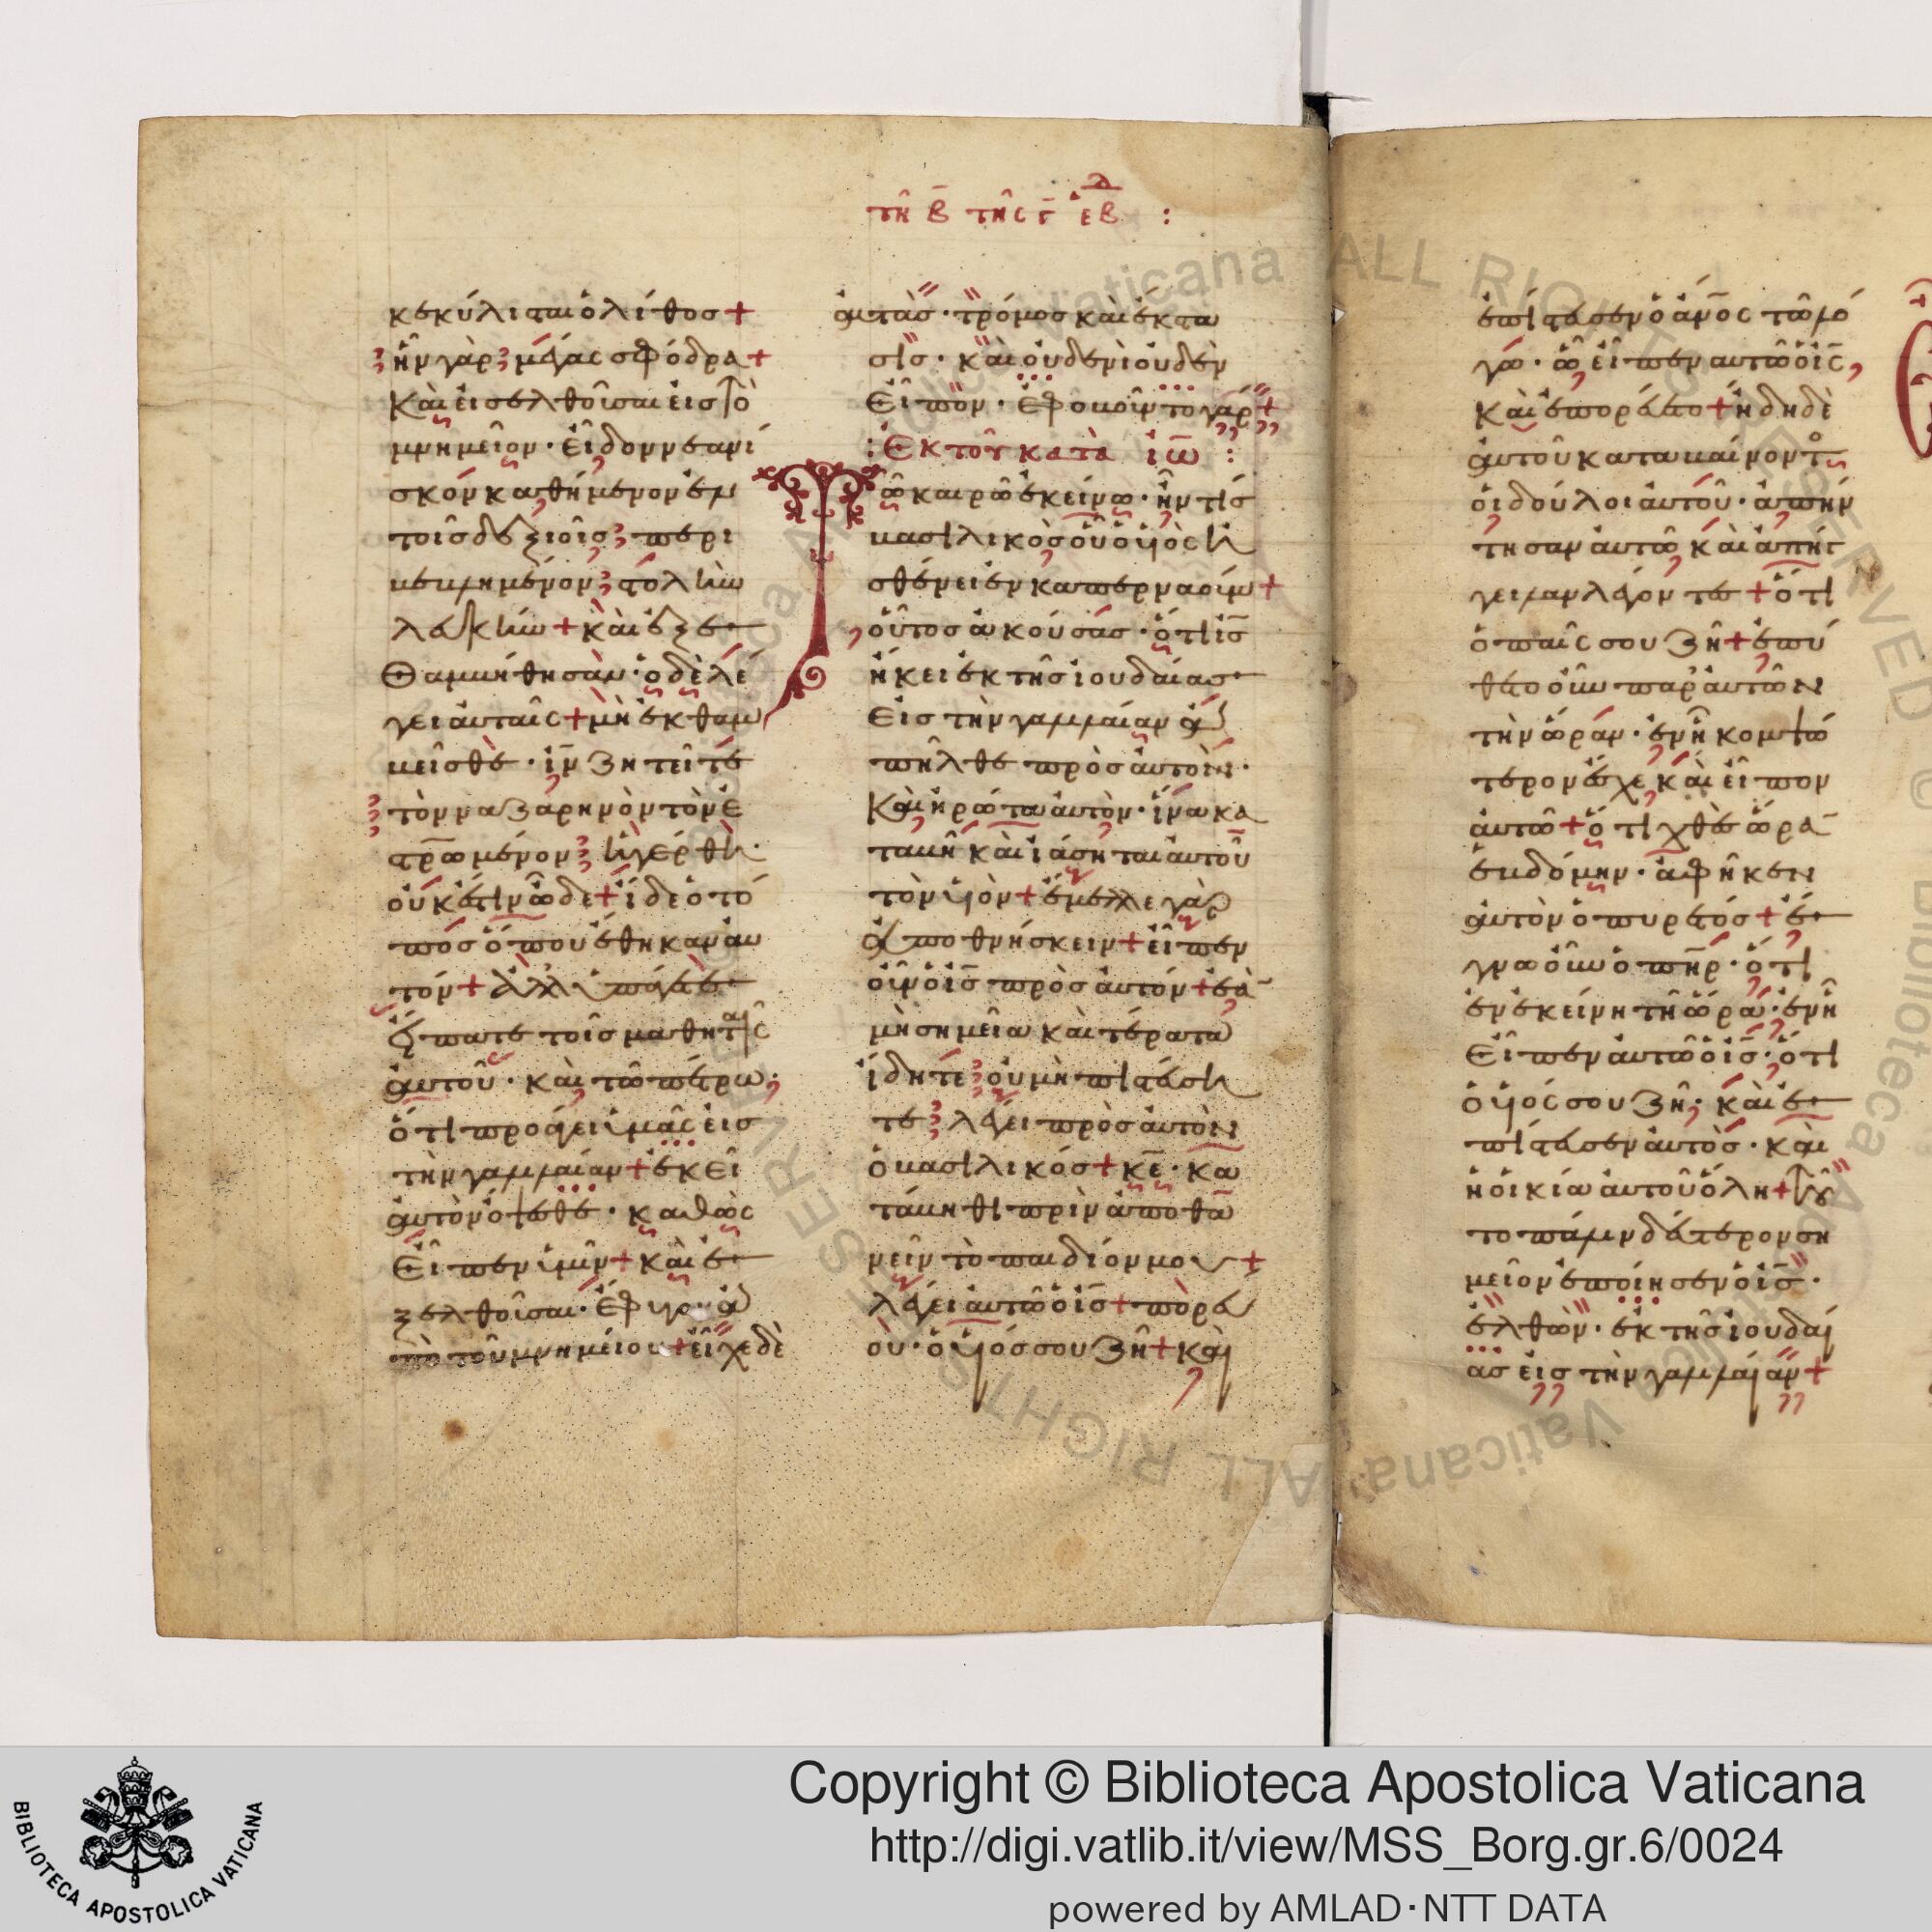 τῆ β̄ τῆς γ̄ ἑβδ :
κεκύλισται ὁ λίθοσ +
ἦν γὰρ μέγασ σφόδρα +
Και εἰσελθοῦσαι εἰς τὸ
μνημεῖον · εἶδον νεανί
σκον καθήμενον ἐν
τοῖσ δεξιοῖσ περι
βεβλημένον στολὴν
λευκὴν + καὶ ἐξε
θαμβήθησαν · ὁ δὲ λέ
γει ἀυταῖς + μὴ ἐκθαμ
βεῖσθε · ἰν̄ ζητεῖτε
τὸν ναζαρηνὸν τὸν ἐ
στρ̄ωμένον ἠγέρθη ·
οὐκ ἔστιν ὧδε + ἴδε ὁ τό
ποσ ὅπου ἔθηκαν ἀυ
τόν + ἀλλ ὑπάγετε
ἔιπατε τοῖσ μαθηταῖς
ἀυτοῦ · καὶ τῶ πέτρω ·
ὅτι προάγει ὑμᾶς εἰσ
τὴν γαλιλαίαν + ἐκεῖ
ἀυτὸν ὄψεσθε · καθὼς
Εἶπεν ὑμῖν + καὶ ἐ
ξελθοῦσαι · ἔφυγον ἀ
πὸ τοῦ μνημείου + εἶχε δὲ
ἀυτὰσ · τρόμοσ καὶ ἔκστα
σισ · καὶ οὐδενὶ οὐδὲν
Εἶπον · ἐφοβοῦντο γάρ +
: Ἐκ τοῦ κατὰ ἰω̄ :
Τῶ καιρῶ ἐκείνω · ἦν τίσ
βασιλικὸσ οὗ ὁ υἱὸς ἠ
σθένει ἐν καπερναούμ +
οὗτοσ ἀκούσασ · ὅτι ἰσ̄
ἥκει ἐκ τῆσ ἰουδαίασ
Εἰσ τὴν γαλιλαίαν ἀ
πῆλθε πρὸσ ἀυτὸν ·
Καὶ ἠρώτα ἀυτὸν · ἵνα κα
ταβῆ καὶ ἰάσηται ἀυτοῦ
τὸν υἱὸν + ἔμελλε γὰρ
ἀποθνήσκειν + εἶπεν
οὖν ὁ ἰσ̄ πρὸσ ἀυτόν + ἐὰ
μὴ σημεῖα καὶ τέρατα
ἴδητε οὐ μὴ πιστέυση
τε λέγει πρὸσ ἀυτὸν
ὁ βασιλικόσ + κε̄ · κα
τάβηθι πρὶν ἀποθα
νεῖν τὸ παιδίον μου +
λέγει ἀυτῶ ὁ ἰσ̄ + πορέυ
ου · ὁ υἱόσ σου ζῆ + καὶ
ἐπίστευσεν ὁ ἀν̄ος τῶ λό
γω · ὧ εἶπεν αυτῶ ὁ ἰς̄,
Καὶ ἐπορέυετο + ἤδη δὲ
ἀυτοῦ καταβαίνοντο
οἱ δοῦλοι ἀυτοῦ · ἀπήν
τησαν ἀυτῶ καὶ ἀπήγ
γειλαν λέγοντες + ὅτι
ὁ παῖς σου ζῆ + ἐπύ
θετο οὖν παρ ἀυτῶν
τὴν ὥραν · ἐν ἧ κομψό
τερον ἔσχε, καὶ εἶπον
ἀυτῶ + ὅτι χθὲς ὥρα
ἑβδόμην · ἀφῆκεν
ἀυτὸν ὁ πυρετόσ + ἔ
γνω οὖν ὁ πη̄ρ · ὅτι
ἐν ἐκείνη τῆ ὥρα · ἐν ἧ
Εἶπεν ἀυτῶ ὁ ἰσ̄ · ὅτι
ὁ υἱός σου ζῆ · καὶ ἐ
πίστευσεν ἀυτὸσ · καὶ
ἡ οἰκία ἀυτοῦ ὅλη + τοῦ
το πάλιν δέυτερον ση
μεῖον ἐποίησεν ὁ ἰσ̄ ·
ἐλθὼν · ἐκ τῆσ ἰουδαί
ασ εἰσ τὴν γαλιλαίαν +
Copyright © Biblioteca Apostolica Vaticana
http://digi.vatlib.it/view/MSS_Borg.gr.6/0024
powered by AMLAD·NTT DATA
BIBLIOTECA APOSTOLICA VATICANA